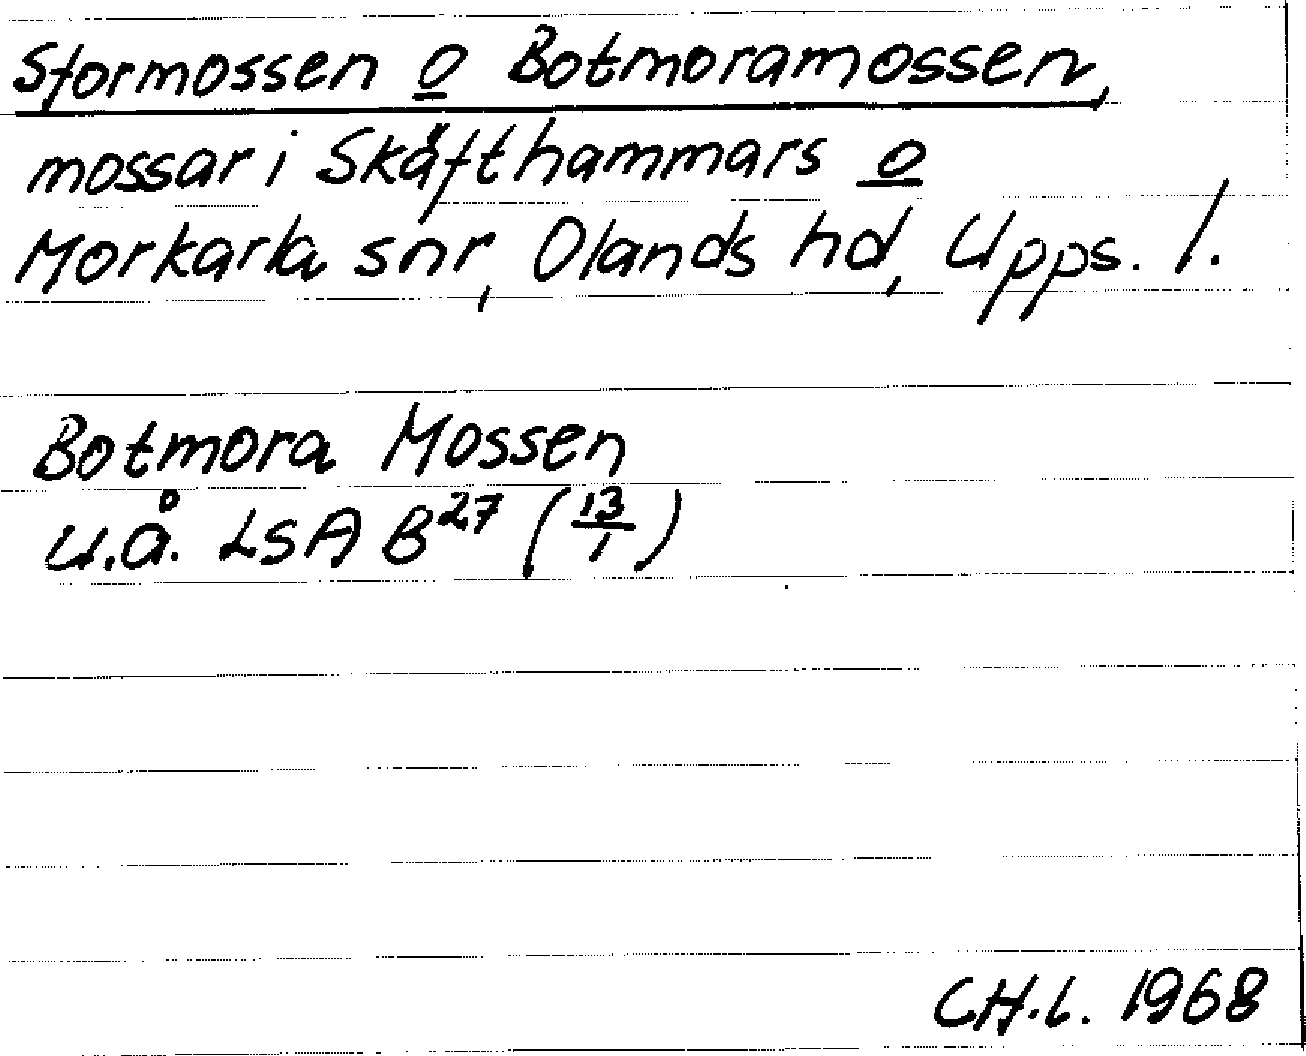 Stormossen o Botmoramossen,
mossar i Skäfthammars o
Morkarla snr, Olands hd, Upps. l.
Botmora Mossen
u.å. LSA B27 (13/1)
CH.L. 1968